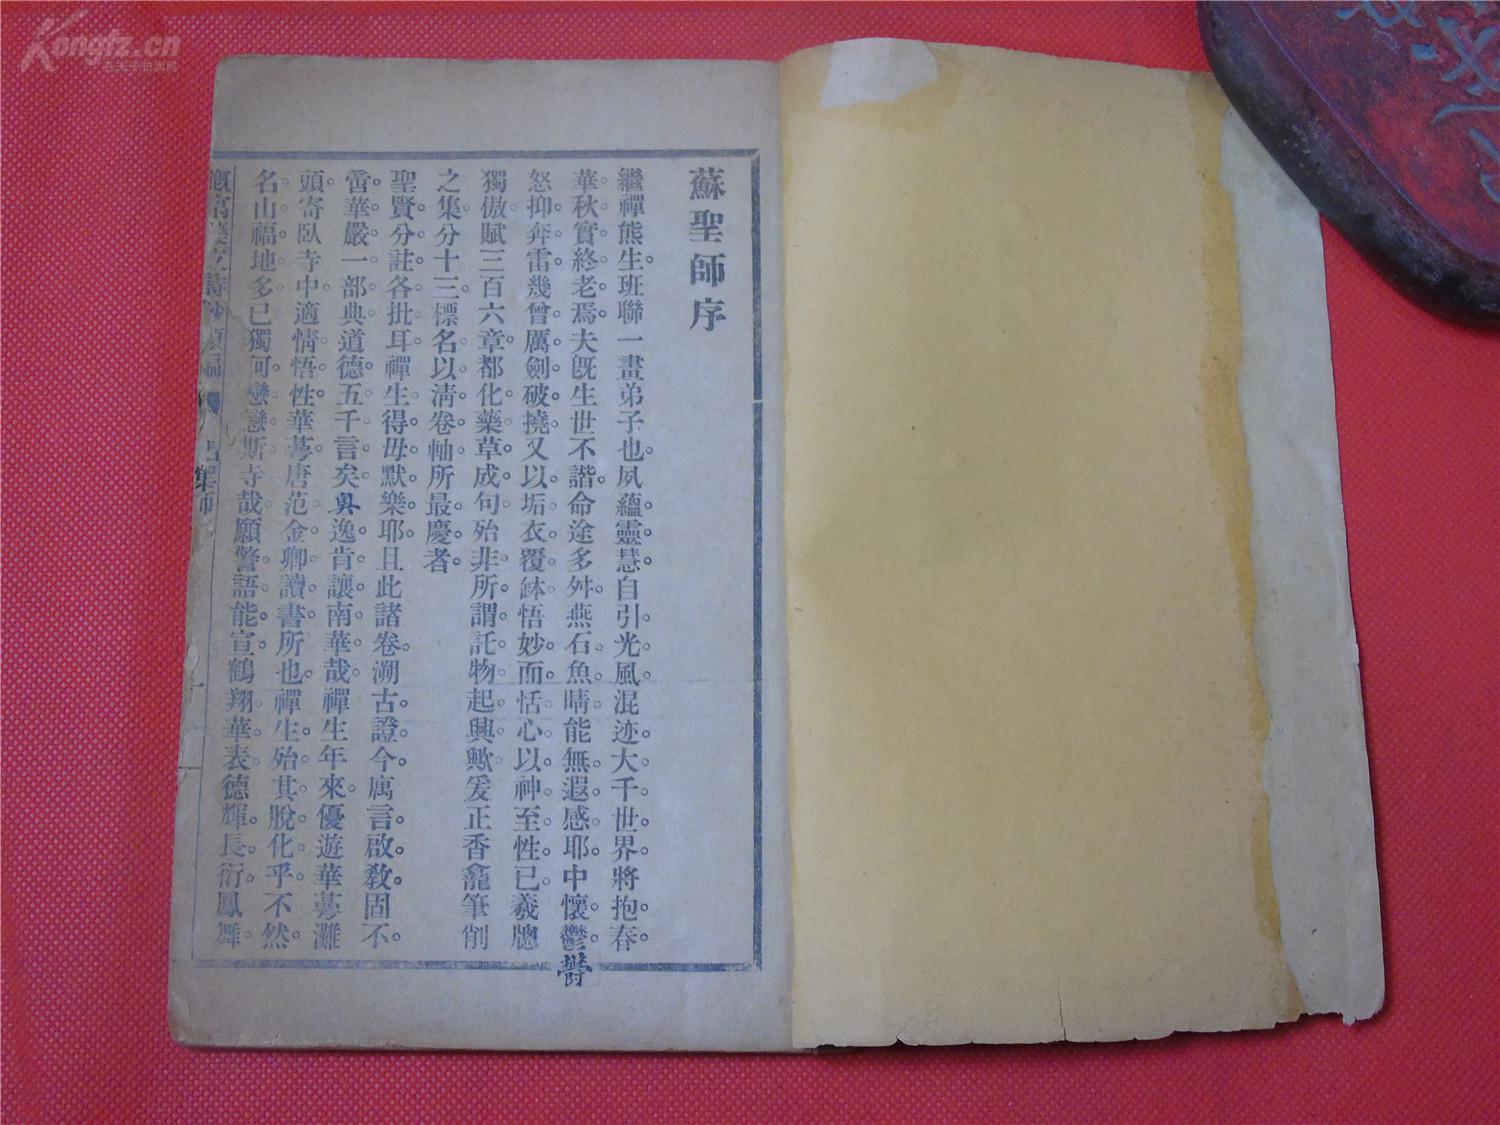 蘇聖師序
繼禪熊生班聯一畫弟子也夙蘊靈慧自引光風混迹大千世界將抱春
華秋實終老焉夫旣生世不諧命途多舛燕石魚睛能無遐感耶中懷鬱
怒抑奔雷幾曾厲劍破撓又以垢衣覆鉢悟妙而恬心以神至性已羲牕
獨傲賦三百六章都化藥草成句殆非所謂託物起興歟爰正香龕筆削
之集分十三標名以淸卷軸所最慶者
聖賢分註各批耳禪生得毋默樂耶且此諸卷溯古證今寓言啟敎固不
啻華嚴一部典道德五千言矣與逸肯讓南華哉禪生年來優遊華蕚灘
頭寄臥寺中適情悟性華蕚唐范金卿讀書所也禪生殆其脫化乎不然
名山福地多已獨何戀戀斯寺哉願警語能宣鶴翔華表德輝長衍鳳舞
鬱
Kongfz.cn
孔夫子拍卖网